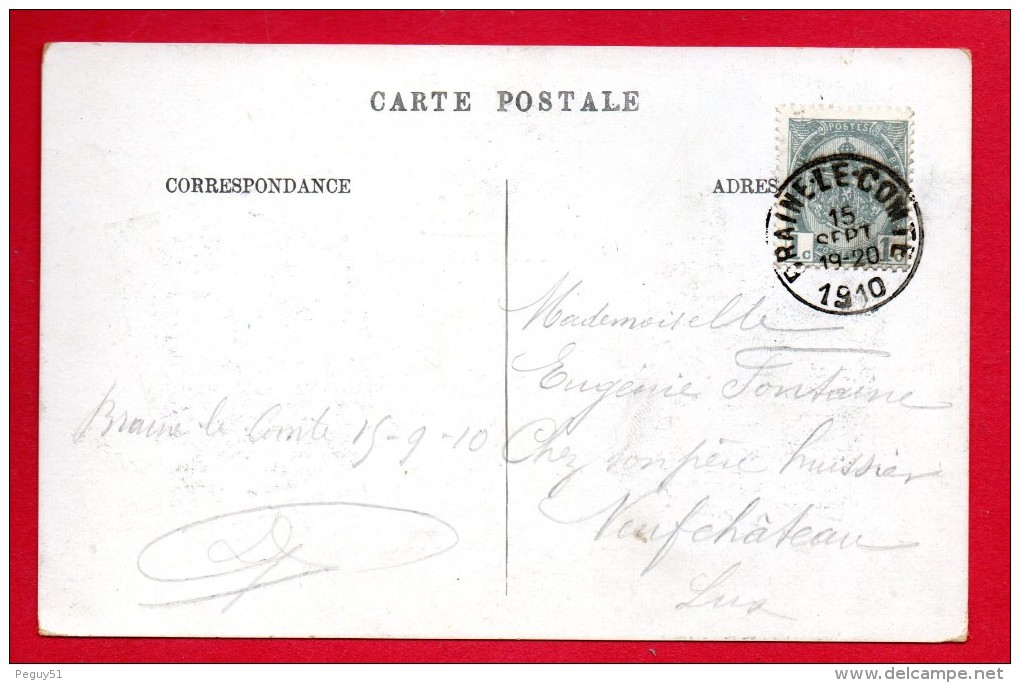 CARTE POSTALE
CORRESPONDANCE
ADRES
POSTES
1
BRAINE-LE-COMTE
15
SEPT
19-20
1910
Mademoiselle
Eugénie Fontaine
Chez son père huissier
Neufchâteau
Lux
Braine le Comte 15-9-10
Peguy51
delcampe.net